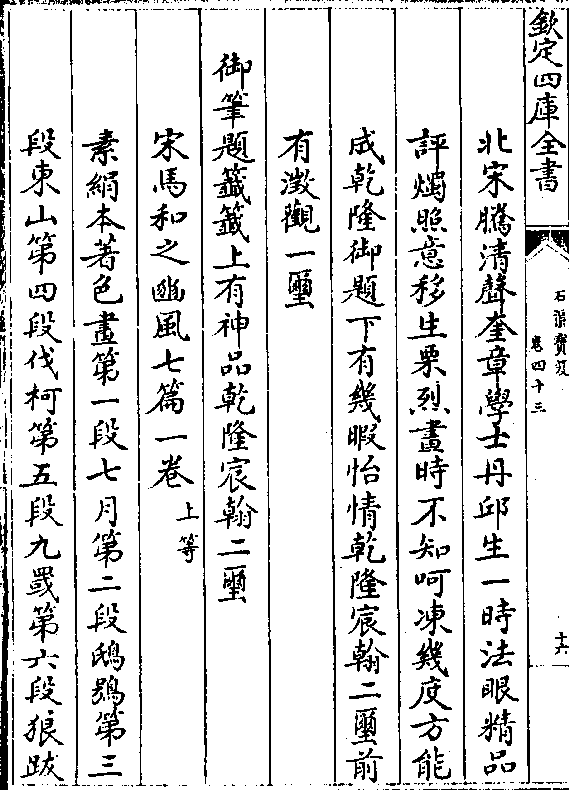 欽定四庫全書
石渠寶笈
卷四十三
十六
北宋騰清聲奎章學士丹邱生一時法眼精品
評燭照意移生栗烈畫時不知呵凍幾度方能
成乾隆御題下有幾暇怡情乾隆宸翰二璽前
有澂觀一璽
御筆題籤籤上有神品乾隆宸翰二璽
宋馬和之豳風七篇一卷上等
素絹本著色畫第一段七月第二段鴟鴞第三
段東山第四段伐柯第五段九罭第六段狼跋